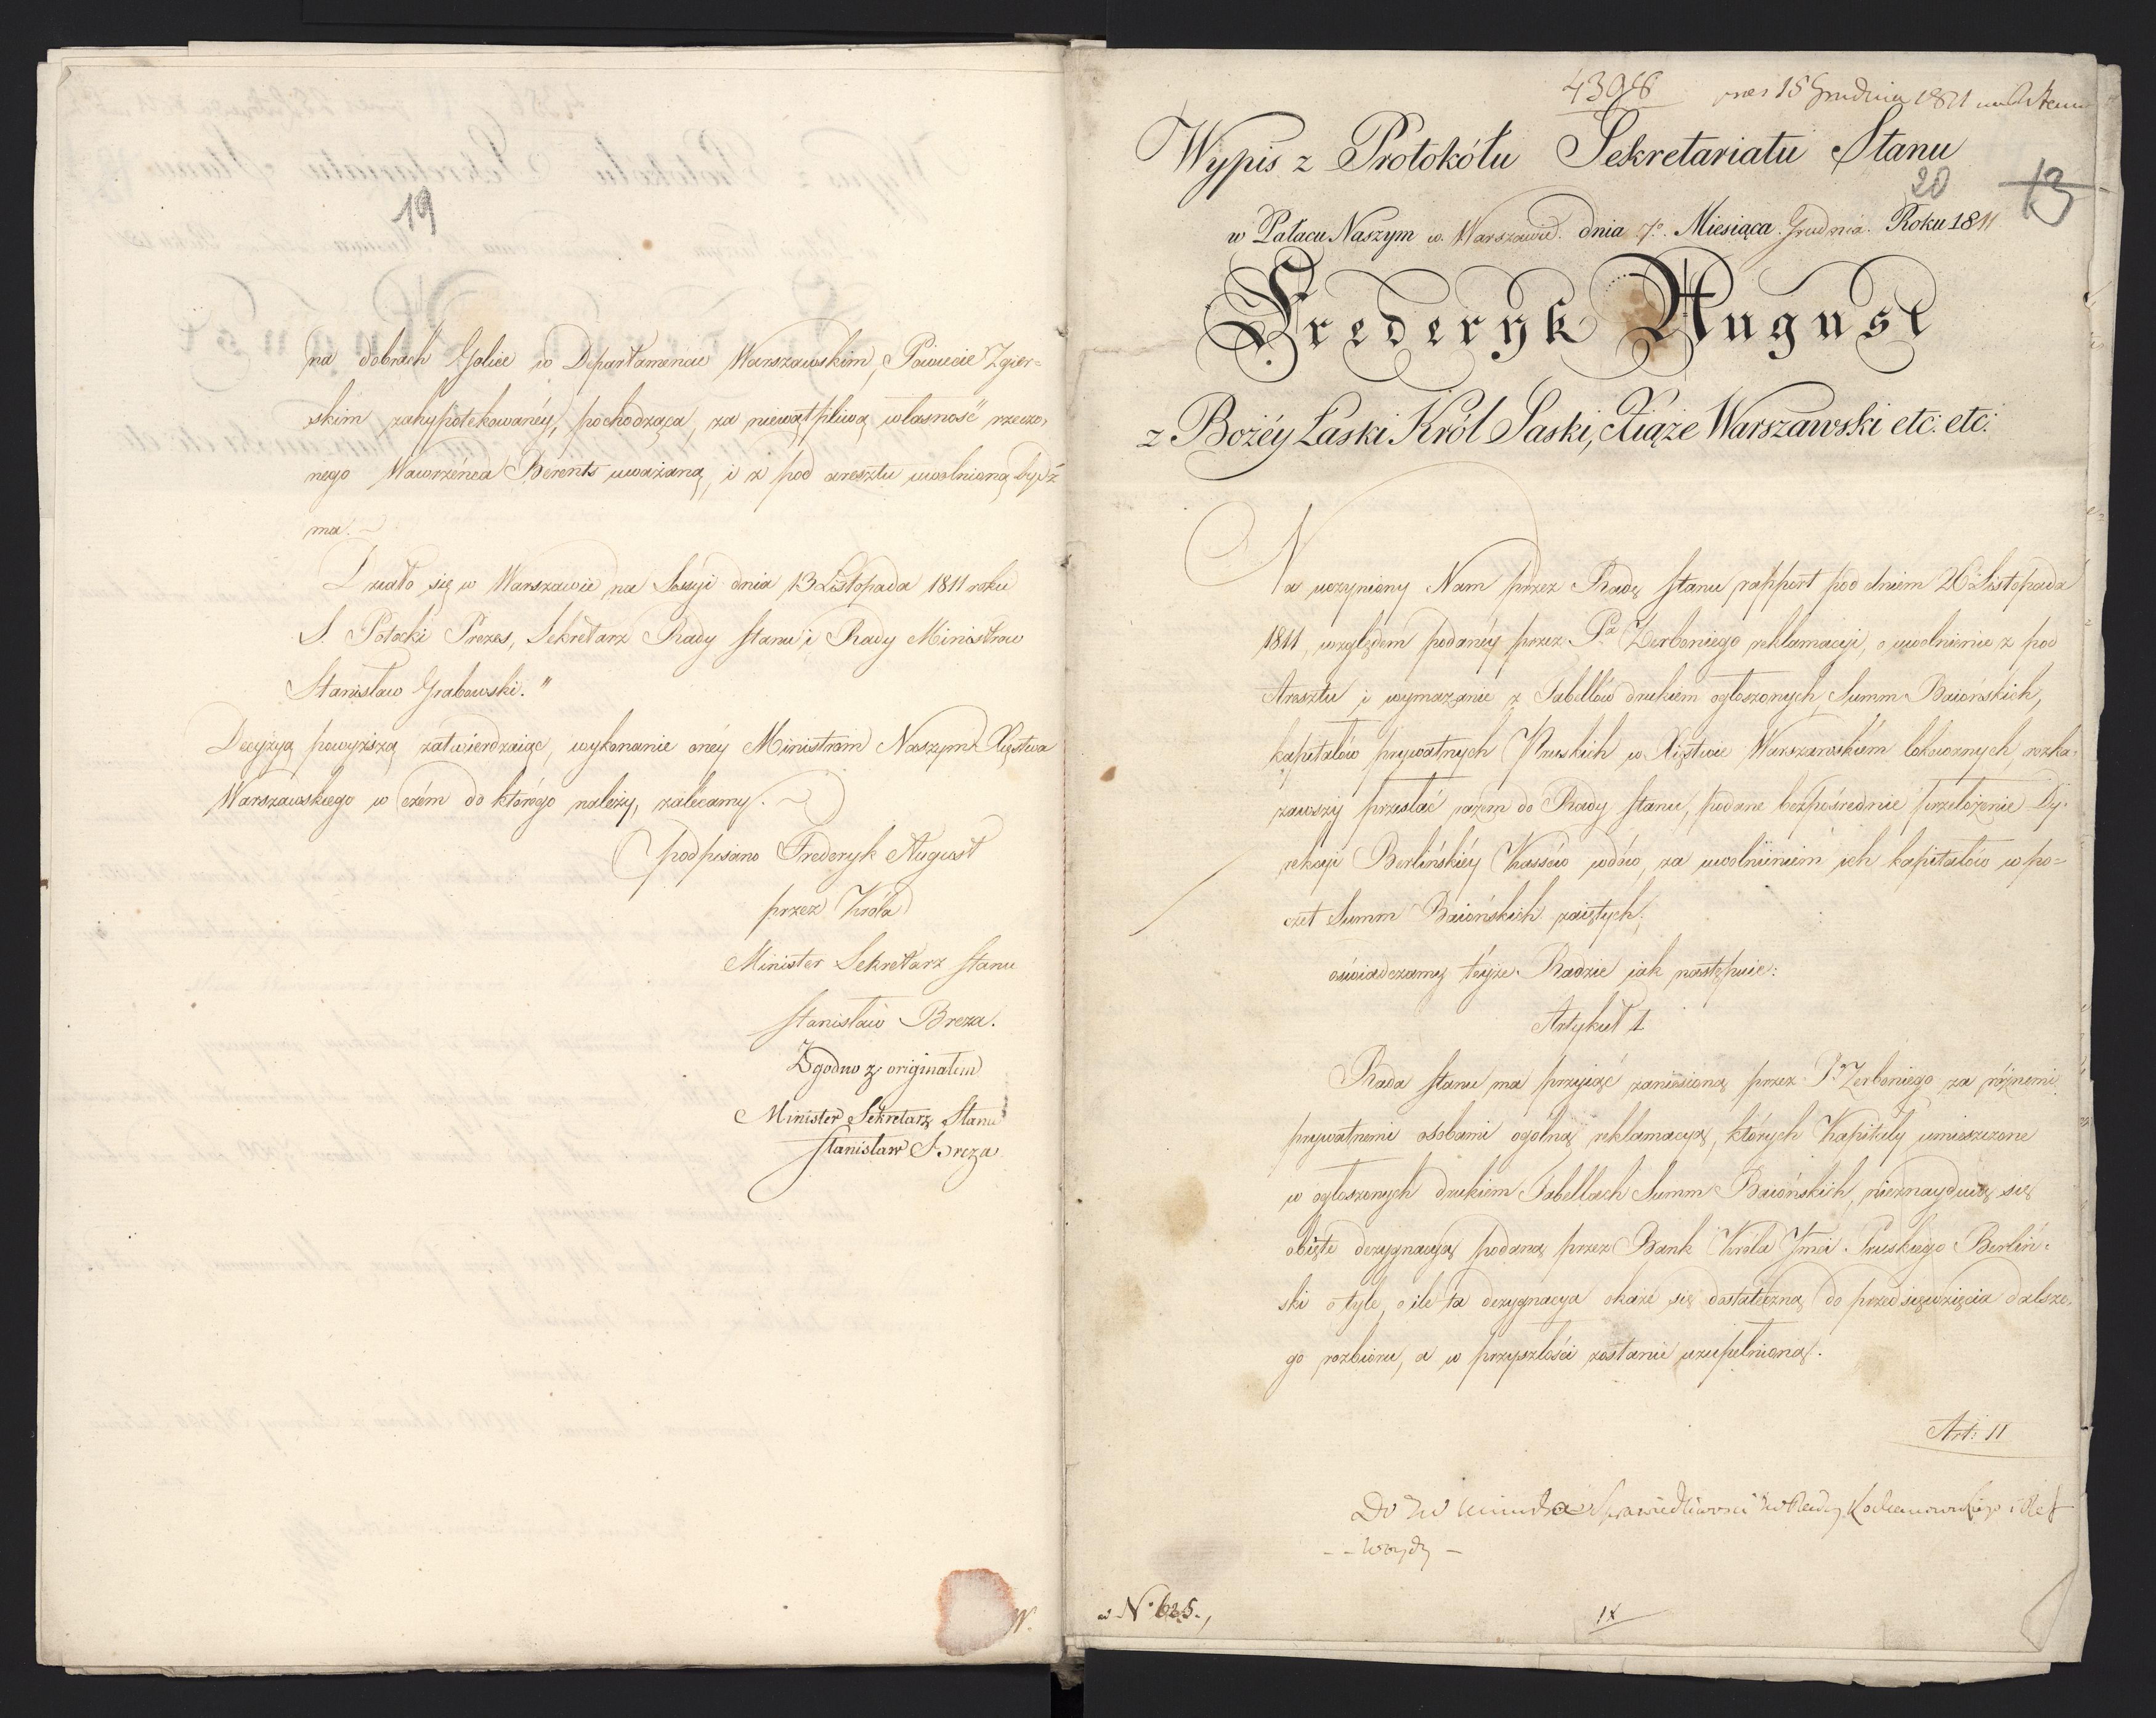 19
na dobrach Golice w Departamencie Warszawskim, Powiecie Zgier=
skim zahypotekowanéy, pochodząca, za niewątpliwą własność rzeczo,
nego Wawrzeńca Berents uważaną, i z pod aresztu uwolnioną bydź
ma.
Działo się w Warszawie na Sessyi dnia 13 Listopada 1811 roku
S. Potocki Prezes, Sekretarz Rady Stanu i Rady Ministrow
Stanisław Grabowski."
Decyzyą powyższą zatwierdzaiąc, wykonanie onéy Ministrom Naszym Xięstwa
Warszawskiego w czém do którego należy, zalécamy.
podpisano Frederyk August
przez Króla
Minister Sekretarz Stanu
Stanisław Breza.
Zgodno z originałem
Minister Sekretarz Stanu
Stanisław Breza
W.
4398 15 Grudnia 1811
Wypis z Protokółu Sekretariatu Stanu
20 13
w Pałacu Naszym w Warszawie. dnia 7o. Miesiąca Grudnia. Roku 1811
Frederyk August
z Bożéy Łaski Król Saski, Xiąże Warszawski etc: etc:
Na uczyniony Nam przez Radę Stanu rapport pod dniem 26 Listopada
1811, względem podanéy przez Pa Zerboniego reklamacyi, o uwolnienie z pod
Aresztu i wymazanie z Tabellów drukiem ogłoszonych, Summ Baiońskich,
kapitałów prywatnych Pruskich w Xięstwie Warszawskiém lokowanych, rozka-
zawszy przesłać razem do Rady Stanu, podane bezpośrednie przełożenie Dy-
rekcyi Berlińskiéy Kassów wdów, za uwolnieniem ich kapitałów w po=
czet Summ Baiońskich zaiętych;
oświadczamy téyże Radzie jak następuie:
Artykuł 1
Rada Stanu ma przyiąć zaniesioną przez Pa Zerboniego za różnemi
prywatnemi osobami ogólną reklamacyą, których Kapitały umieszczone
w ogłoszonych drukiem Tabellach Summ Baiońskich, nieznayduią się
obięte dezygnacyą podaną przez Bank Króla Jmci Pruskiego Berliń-
ski o tyle, o ile ta dezygnacya okaże się dostateczną do przedsięwzięcia dalsze,
go rozbioru, a w przyszłości zostanie uzupełnioną.
Art: II
Do Sprawiedliwości Kochanowskiego i Ref
w No 625.,
IX